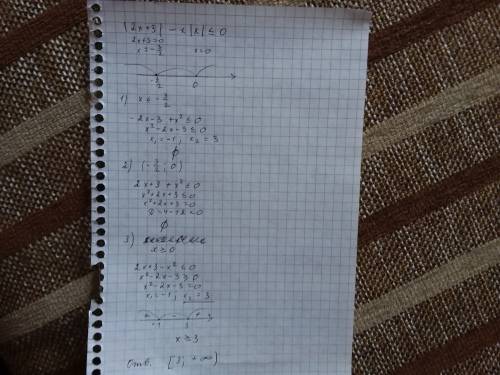 |2x+3| - x|x| ≤ 0
2x+3=0
x = -3/2 x=0
-3/2 0
1) x ≤ -3/2
-2x-3 + x² ≤ 0
x²-2x-3 ≤ 0
x₁=-1; x₂=3
∅
2) (-3/2; 0)
2x+3 + x² ≤ 0
x²+2x+3 ≤ 0
x²+2x+3 = 0
D=4-12<0
∅
3)
x ≥ 0
2x+3-x² ≤ 0
x²-2x-3 ≥ 0
x²-2x-3=0
x₁=-1; x₂=3
+ - +
-1 3
x ≥ 3
Отв. [3; +∞)